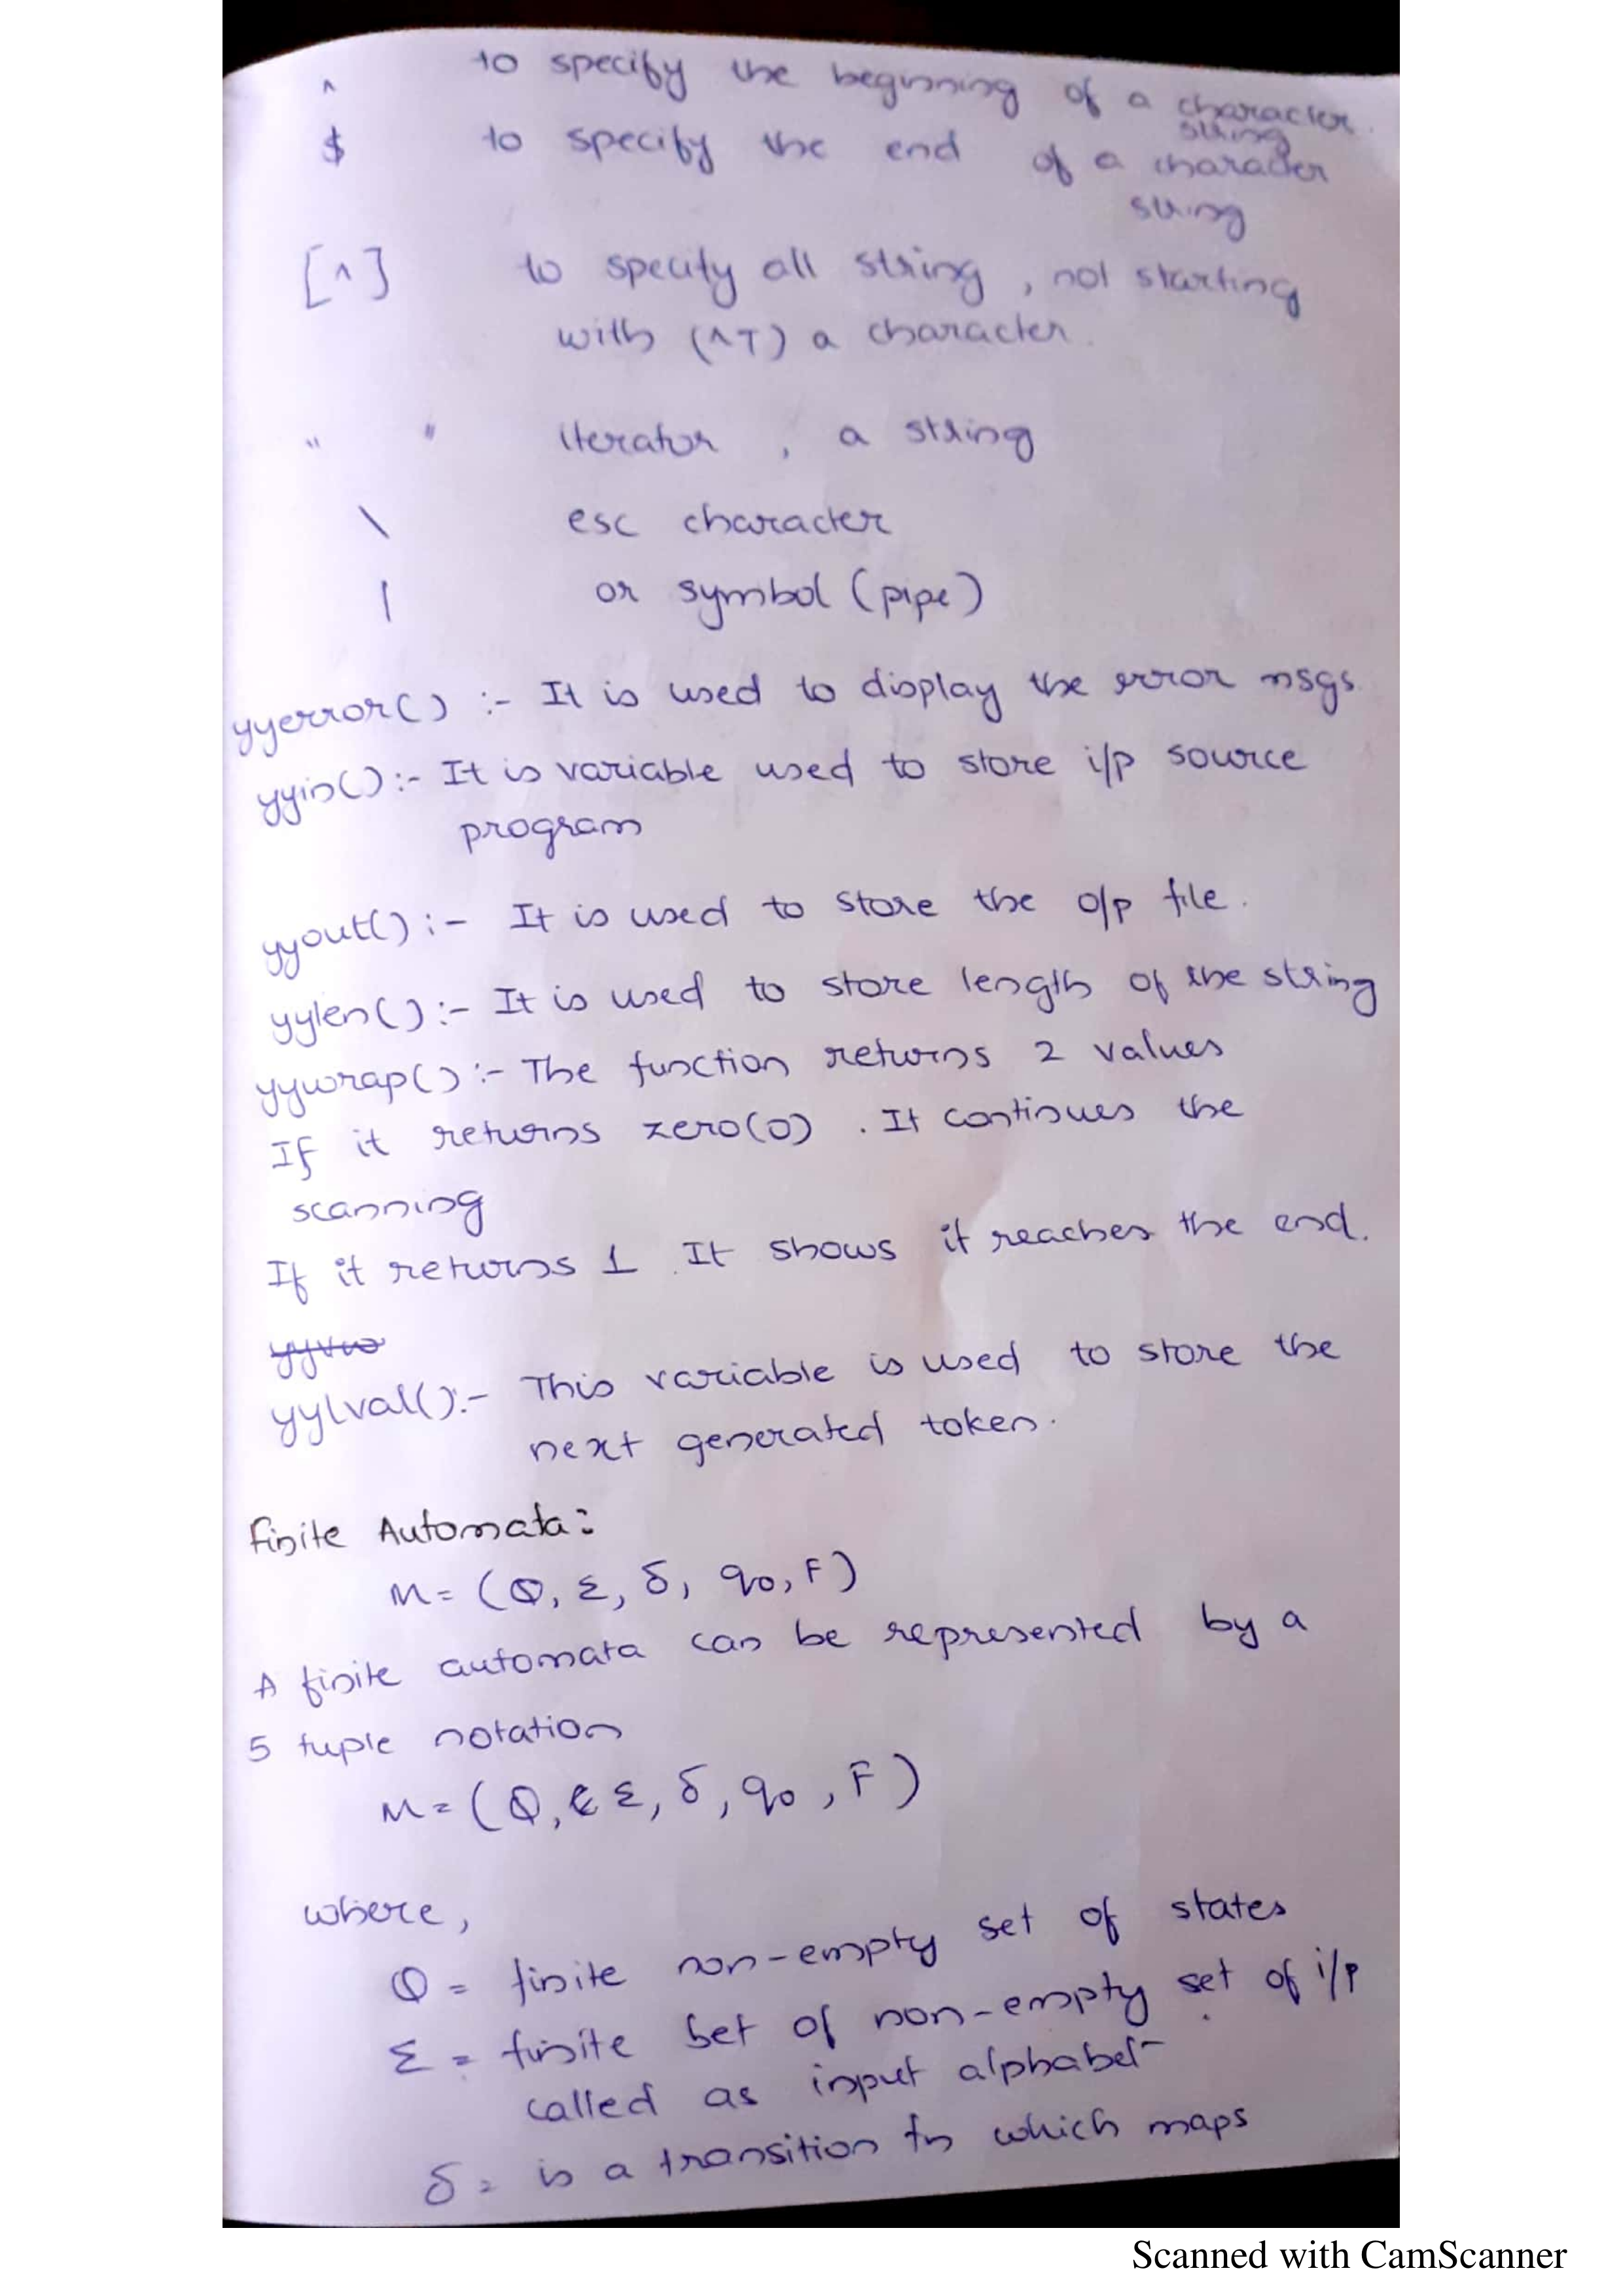 ^ to specify the beginning of a character
string
$ to specify the end of a character
string
[^] to specify all string , not starting
with (^T) a character.
" " iterator , a string
\ esc character
| or symbol (pipe)
yyerror() :- It is used to display the error msgs.
yyin() :- It is variable used to store i/p source
program
yyout() :- It is used to store the o/p file.
yylen() :- It is used to store length of the string
yywrap() :- The function returns 2 values
If it returns zero(0) . It continues the
scanning
If it returns 1 . It shows it reaches the end.
yylval() :- This variable is used to store the
next generated token.
Finite Automata:
M = (Q, Σ, δ, q0, F)
A finite automata can be represented by a
5 tuple notation
M = (Q, Σ, δ, q0, F)
where,
Q = finite non-empty set of states
Σ = finite set of non-empty set of i/p
called as input alphabet
δ = is a transition fn which maps
Scanned with CamScanner